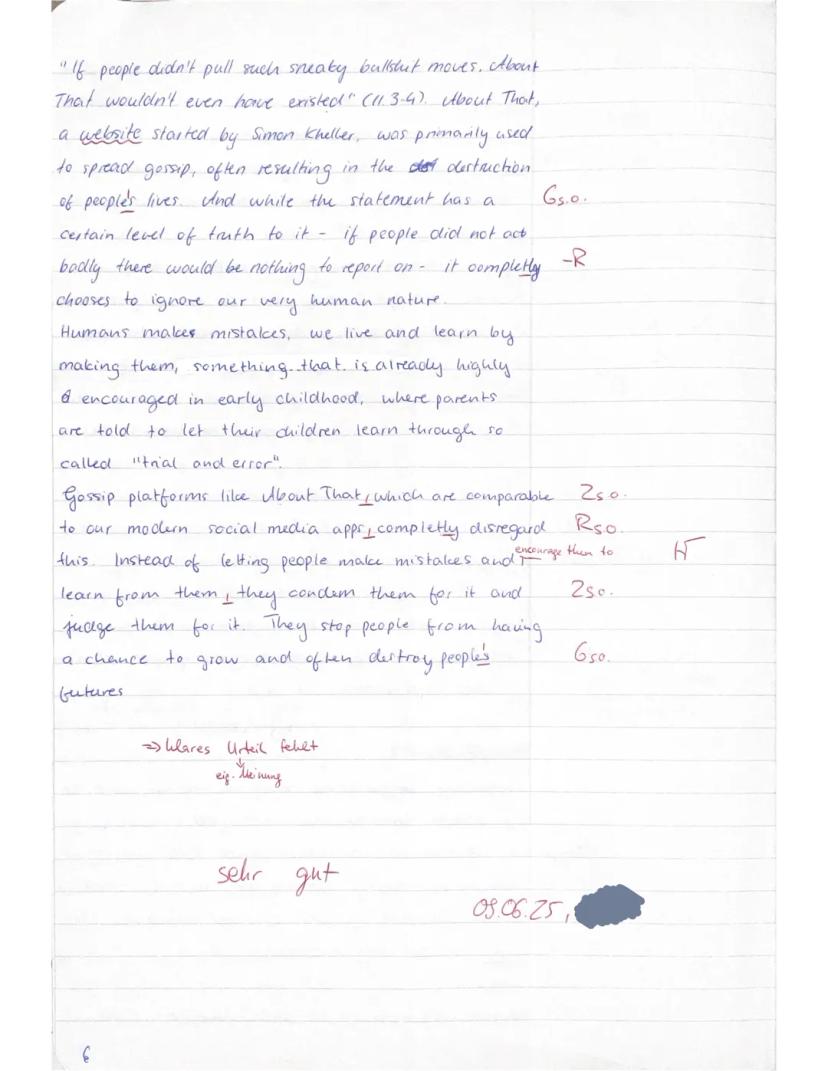 "If people didn't pull such sneaky bullshit moves. About
That wouldn't even have existed" (ll. 3-4). About That,
a website started by Simon Kheller, was primarily used
to spread gossip, often resulting in the destruction
of people's lives. And while the statement has a Gs.o.
certain level of truth to it - if people did not act
badly there would be nothing to report on - it completly -R
chooses to ignore our very human nature.
Humans makes mistakes, we live and learn by
making them, something that is already highly
encouraged in early childhood, where parents
are told to let their children learn through so
called "trial and error".
Gossip platforms like About That, which are comparable Zso.
to our modern social media apps, completly disregard Rso.
this. Instead of letting people make mistakes and encourage them to
learn from them, they condem them for it and Zso.
judge them for it. They stop people from having
a chance to grow and often destroy people's Gso.
futures
=> klares Urteil fehlt
↓
eig. Meinung
sehr gut
09.06.25,
6